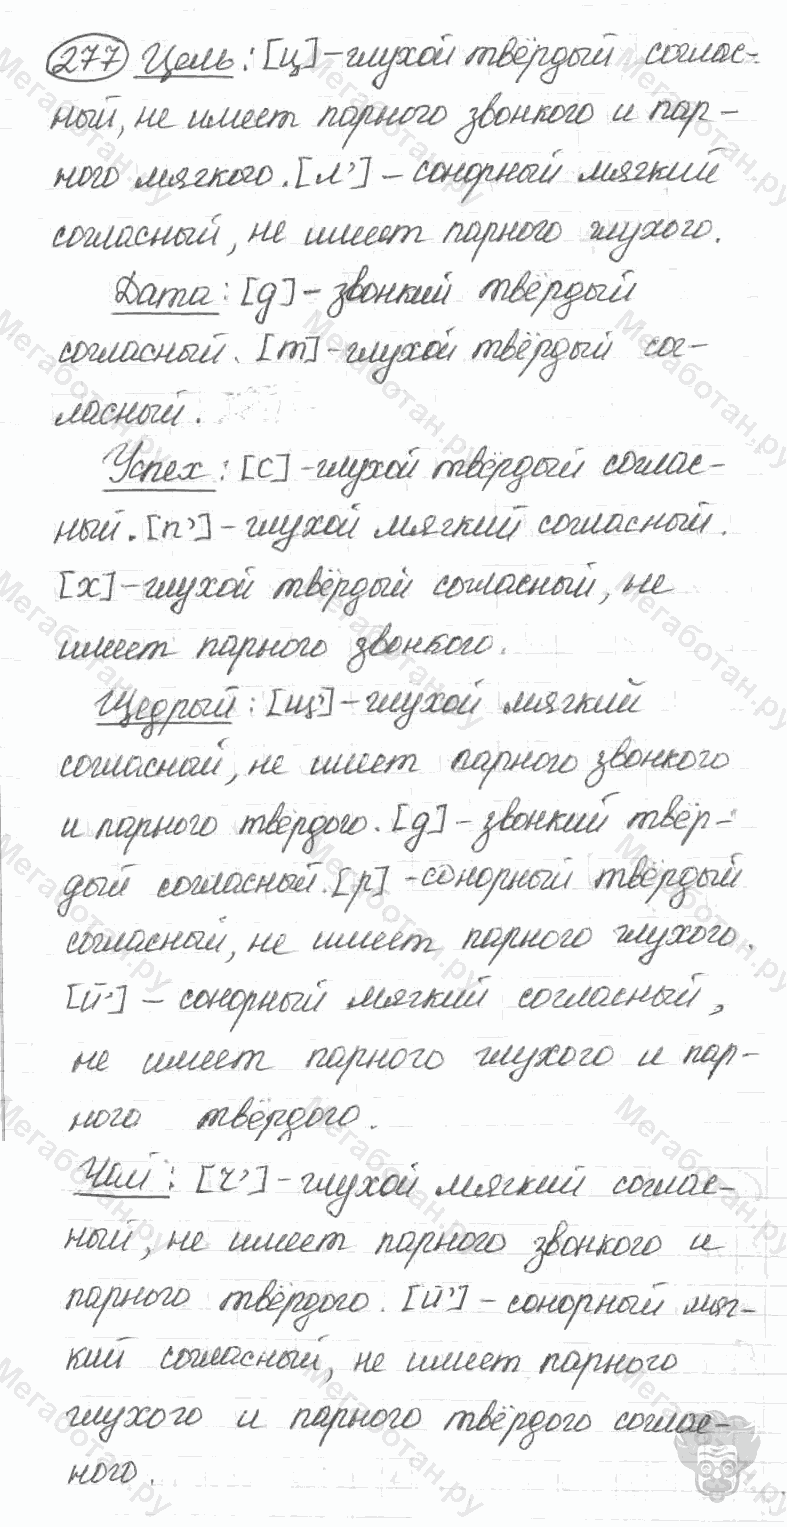 277 Цель: [ц]-глухой твёрдый соглас-
ный, не имеет парного звонкого и пар-
ного мягкого. [л'] - сонорный мягкий
согласный, не имеет парного глухого.
Дата: [д] - звонкий твёрдый
согласный. [т]-глухой твёрдый сог-
ласный.
Успех: [с] -глухой твёрдый соглас-
ный. [п'] - глухой мягкий согласный.
[х]-глухой твёрдый согласный, не
имеет парного звонкого.
Щедрый: [щ']-глухой мягкий
согласный, не имеет парного звонкого
и парного твёрдого. [д] - звонкий твёр-
дый согласный. [р] -сонорный твёрдый
согласный, не имеет парного глухого.
[й'] - сонорный мягкий согласный,
не имеет парного глухого и пар-
ного твёрдого.
Чай: [ч'] - глухой мягкий соглас-
ный, не имеет парного звонкого и
парного твёрдого. [й'] - сонорный мяг-
кий согласный, не имеет парного
глухого и парного твёрдого соглас-
ного.
Мегаботан.ру